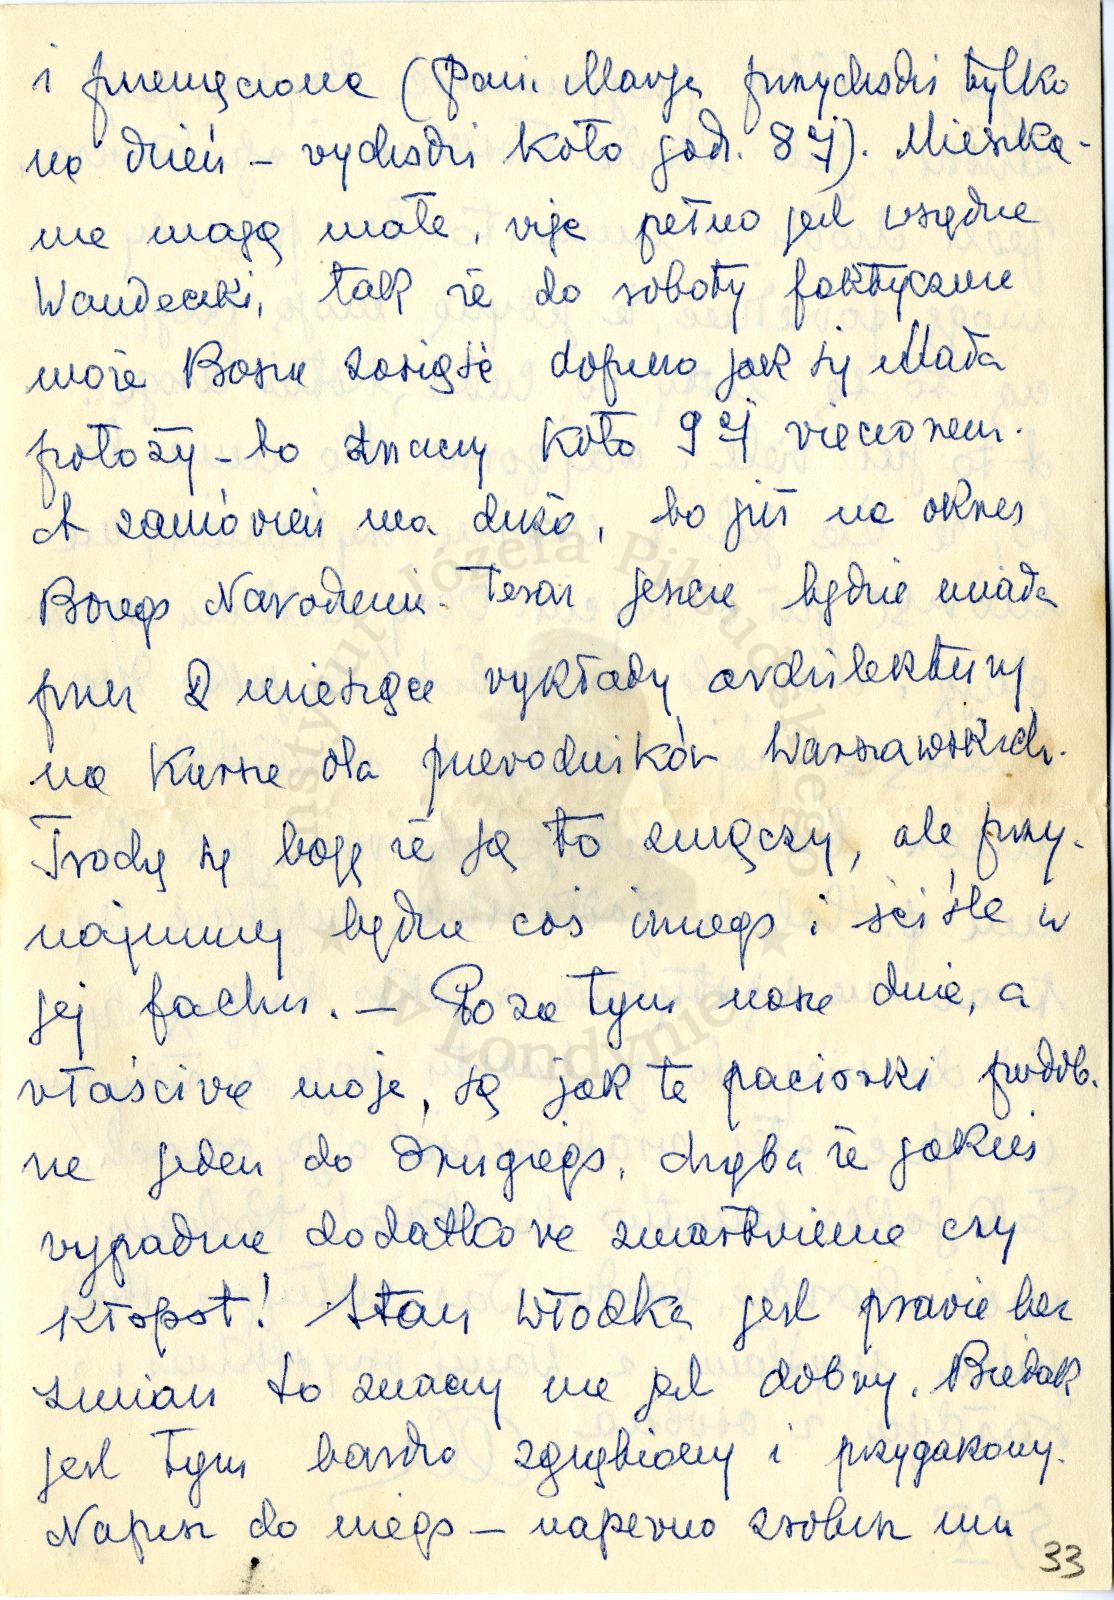 i przemęczona (Pani Marja przychodzi tylko
na dzień – wychodzi koło god. 8ej). Mieszka-
nie mają małe, więc pełno jest wszędzie
Wandeczki, tak że do soboty faktycznie
może Bosze zasiąść dopiero jak się Mała
położy – to znaczy koło 9ej wieczorem.
A zamówień ma dużo, bo już na okres
Bożego Narodzenia. Teraz jeszcze będzie miała
przez 2 miesiące wykłady architektury
na Kursie dla przewodników Warszawskich.
Trochę się boję że ją to zmęczy, ale przy-
najmniej będzie coś innego i ściśle w
jej fachu. – Poza tym nasze dnie, a
właściwie moje, są jak te paciorki podob-
ne jeden do drugiego, chyba że jakieś
wypadnie dodatkowe zmartwienie czy
kłopot! Stan Włodka jest prawie bez
zmian to znaczy nie jest dobry. Biedak
jest tym bardzo zgnębiony i przygnębiony.
Napisz do niego – napewno zrobisz mu
33
Instytut Józefa Piłsudskiego
w Londynie